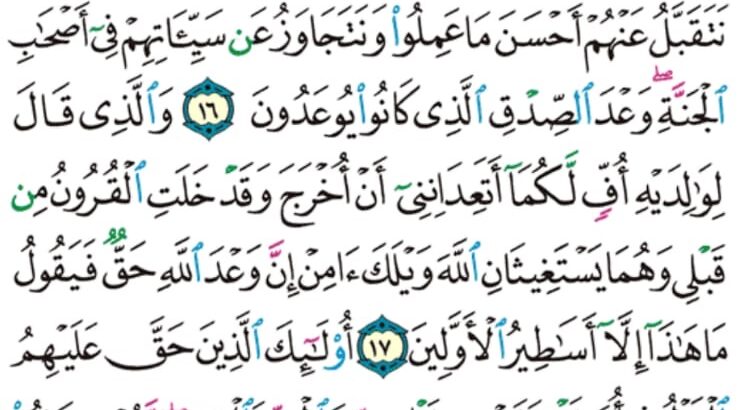 نَتَقَبَّلُ عَنْهُمْ أَحْسَنَ مَا عَمِلُوا۟ وَنَتَجَاوَزُ عَن سَيِّـَٔاتِهِمْ فِىٓ أَصْحَٰبِ
ٱلْجَنَّةِ ۖ وَعْدَ ٱلصِّدْقِ ٱلَّذِى كَانُوا۟ يُوعَدُونَ ١٦ وَٱلَّذِى قَالَ
لِوَٰلِدَيْهِ أُفٍّ لَّكُمَآ أَتَعِدَانِنِىٓ أَنْ أُخْرَجَ وَقَدْ خَلَتِ ٱلْقُرُونُ مِن
قَبْلِى وَهُمَا يَسْتَغِيثَانِ ٱللَّهَ وَيْلَكَ ءَامِنْ إِنَّ وَعْدَ ٱللَّهِ حَقٌّ فَيَقُولُ
مَا هَٰذَآ إِلَّآ أَسَٰطِيرُ ٱلْأَوَّلِينَ ١٧ أُو۟لَٰٓئِكَ ٱلَّذِينَ حَقَّ عَلَيْهِمُ